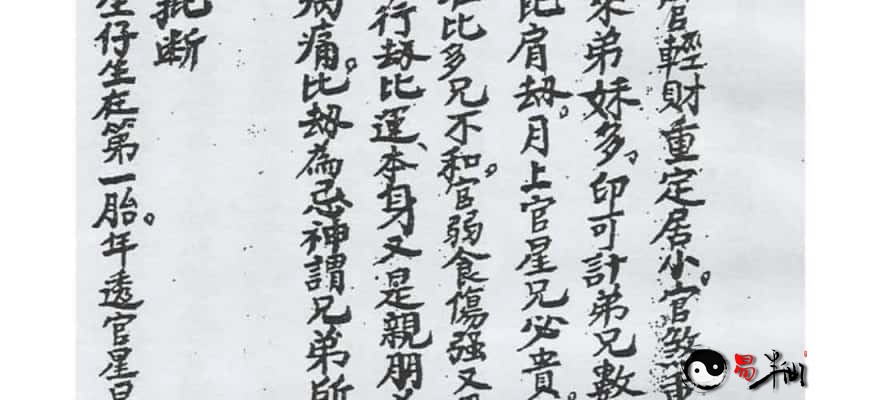 官輕財重定居小。官煞重
來弟妹多。印可計弟兄數
比肩劫。月上官星兄必貴。
比多兄不和。官弱食傷强又
行劫比運、本身又是親朋
病痛。比劫為忌神謂兄弟所
批断
仔生在第一胎。年透官星
易半仙